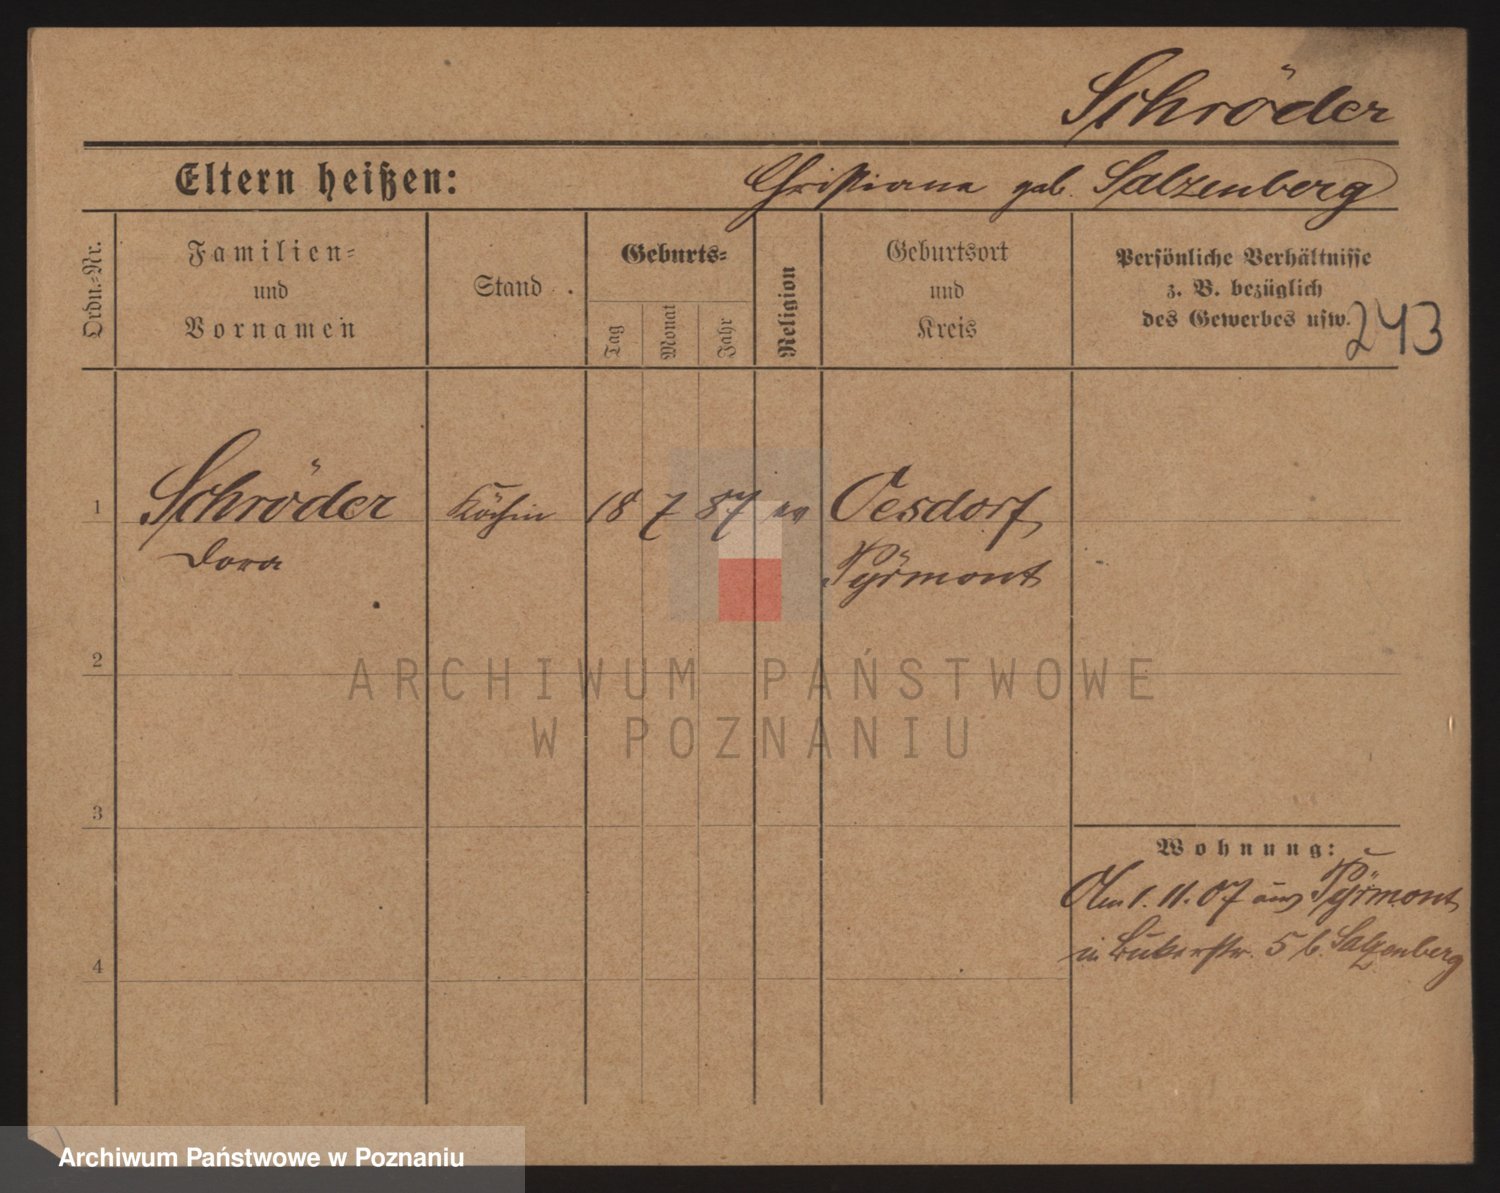 Schröder
Eltern heißen: Christiane geb. Salzenberg
Ordn.=Nr.
Familien=
und
Vornamen
Stand
Geburts=
Tag
Monat
Jahr
Religion
Geburtsort
und
Kreis
Persönliche Verhältnisse
z. B. bezüglich
des Gewerbes usw.
243
1 Schröder Köchin 18 7 87 ev Oesdorf
Dora Pyrmont
2
ARCHIWUM PAŃSTWOWE
W POZNANIU
3
Wohnung:
Am 1. 11. 07 aus Pyrmont
in 5 b. Salzenberg
4
Archiwum Państwowe w Poznaniu